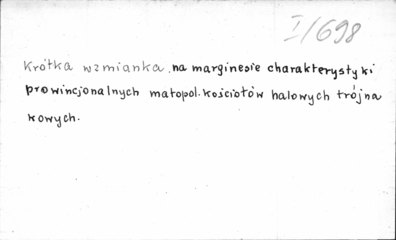 I/698
Krótka wzmianka, na marginesie charakterystyki
prowincjonalnych małopol. kościołów halowych trójna
wowych.